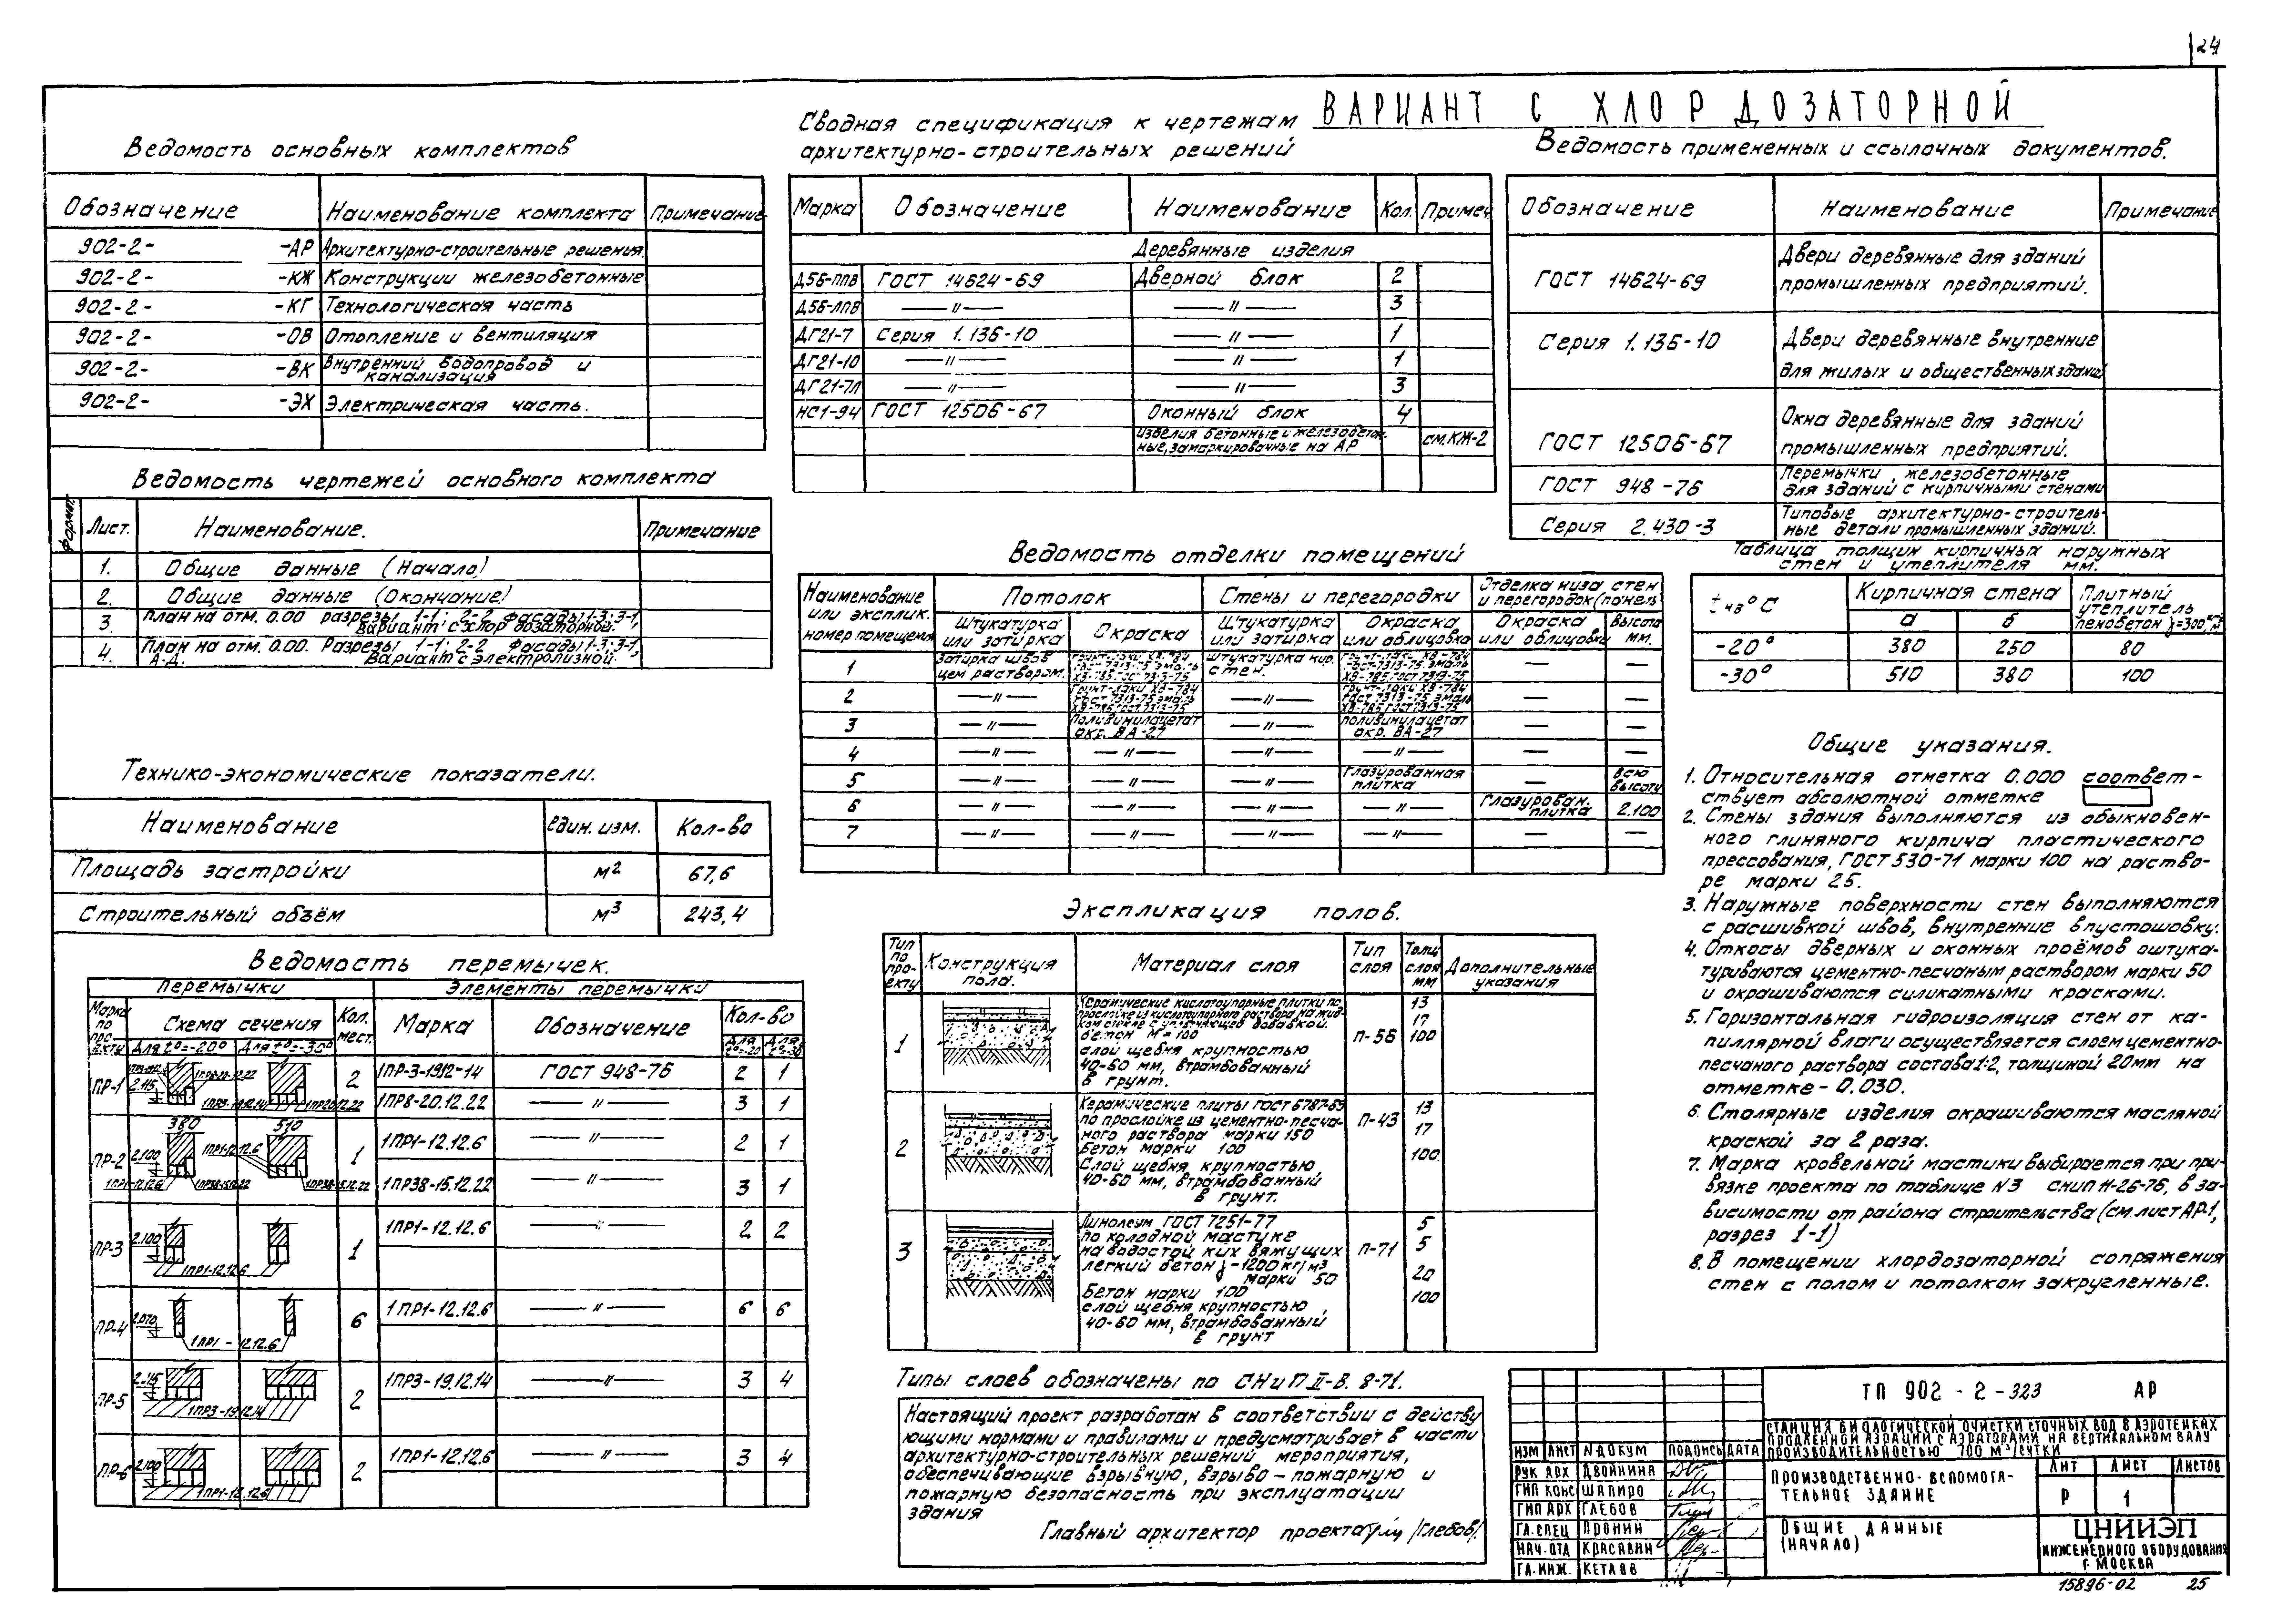 24
ВАРИАНТ С ХЛОРДОЗАТОРНОЙ
Ведомость основных комплектов
Обозначение Наименование комплекта Примечание
902-2- -АР Архитектурно-строительные решения.
902-2- -КЖ Конструкции железобетонные
902-2- -КГ Технологическая часть
902-2- -ОВ Отопление и вентиляция
902-2- -ВК Внутренний водопровод и
канализация
902-2- -ЭХ Электрическая часть.
Ведомость чертежей основного комплекта
формат. Лист. Наименование. Примечание
1. Общие данные (Начало)
2. Общие данные (Окончание)
3. План на отм. 0.00 разрезы 1-1; 2-2 фасады 1-3; 3-1,
Вариант с хлор дозаторной.
4. План на отм. 0.00. Разрезы 1-1; 2-2 Фасады 1-3; 3-1,
А-Д. Вариант с электролизной.
Технико-экономические показатели.
Наименование един. изм. Кол-во
Площадь застройки м2 67,6
Строительный объём м3 243,4
Ведомость перемычек.
Перемычки Элементы перемычки
Марка по проекту Схема сечения Кол. мест. Марка Обозначение Кол-во
Для t°=-20° Для t°=-30° Для t°=-20 Для t°=-30
ПР-1 2.115 2 1ПР-3-19.12-14 ГОСТ 948-76 2 1
1ПР8-20.12.22 —〃— 3 1
380 510
ПР-2 2.100 1ПР1-12.12.6 1 1ПР1-12.12.6 —〃— 2 1
1ПР1-12.12.6 1ПР38-15.12.22 1ПР38-15.12.22 1ПР38-15.12.22 —〃— 3 1
ПР-3 2.100 1ПР1-12.12.6 1 1ПР1-12.12.6 —〃— 2 2
ПР-4 2.070 1ПР1-12.12.6 6 1ПР1-12.12.6 —〃— 6 6
ПР-5 2.115 1ПР3-19.12.14 2 1ПР3-19.12.14 —〃— 3 4
ПР-6 2.100 1ПР1-12.12.6 2 1ПР1-12.12.6 —〃— 3 4
Сводная спецификация к чертежам
архитектурно-строительных решений
Марка Обозначение Наименование Кол. Примеч.
Деревянные изделия
Д56-ППВ ГОСТ 14624-69 Дверной блок 2
Д56-ЛПВ —〃— —〃— 3
ДГ21-7 Серия 1.136-10 —〃— 1
ДГ21-10 —〃— —〃— 1
ДГ21-7Л —〃— —〃— 3
НС1-94 ГОСТ 12506-67 Оконный блок 4
Изделия бетонные и железобетон-
ные, замаркированные на АР см.КЖ-2
Ведомость отделки помещений
Наименование или эксплик. номер помещения Потолок Стены и перегородки Отделка низа стен и перегородок (панель
Штукатурка или затирка Окраска Штукатурка или затирка Окраска или облицовка Окраска или облицовки Высота мм.
1 Затирка швов цем раствором. Грунт-лаки ХВ-784 ГОСТ 7313-75 эмаль ХВ-785 ГОСТ 7313-75 Штукатурка кир. стен. Грунт-лаки ХВ-784 ГОСТ 7313-75 эмаль ХВ-785 ГОСТ 7313-75 — —
2 —〃— Грунт-лаки ХВ-784 ГОСТ 7313-75 эмаль ХВ-785 ГОСТ 7313-75 —〃— Грунт-лаки ХВ-784 ГОСТ 7313-75 эмаль ХВ-785 ГОСТ 7313-75 — —
3 —〃— Поливинилацетат окр. ВА-27 —〃— Поливинилацетат окр. ВА-27 — —
4 —〃— —〃— —〃— —〃— — —
5 —〃— —〃— —〃— Глазурованная плитка — всю высоту
6 —〃— —〃— —〃— —〃— Глазурован. плитка 2.100
7 —〃— —〃— —〃— —〃— — —
Экспликация полов.
Тип по проекту Конструкция пола. Материал слоя Тип слоя Толщ. слоя мм Дополнительные указания
1 Керамические кислотоупорные плитки по
прослойке из кислотоупорного раствора на жид-
ком стекле с уплотняющей добавкой.
бетон М=100
слой щебня крупностью
40-60 мм, втрамбованный
в грунт.
П-56 13 17 100
2 Керамические плиты ГОСТ 6787-69
по прослойке из цементно-песча-
ного раствора марки 150
Бетон марки 100
Слой щебня крупностью,
40-60 мм, втрамбованный
в грунт.
П-43 13 17 100
3 Линолеум ГОСТ 7251-77
по холодной мастике
на водостой ких вяжущих
легкий бетон γ-1200 кг/м3
марки 50
Бетон марки 100
слой щебня крупностью,
40-60 мм, втрамбованный
в грунт
П-71 5 5 20 100
Типы слоев обозначены по СНиП II-В. 8-71.
Настоящий проект разработан в соответствии с действу
ющими нормами и правилами и предусматривает в части
архитектурно-строительных решений мероприятия,
обеспечивающие взрывную, взрыво-пожарную и
пожарную безопасность при эксплуатации
здания
Главный архитектор проекта /Глебов/
Ведомость примененных и ссылочных документов.
Обозначение Наименование Примечание
ГОСТ 14624-69 Двери деревянные для зданий
промышленных предприятий.
Серия 1.136-10 Двери деревянные внутренние
для жилых и общественных здани
ГОСТ 12506-67 Окна деревянные для зданий
промышленных предприятий.
ГОСТ 948-76 Перемычки железобетонные
для зданий с кирпичными стенами
Серия 2.430-3 Типовые архитектурно-строитель-
ные детали промышленных зданий.
Таблица толщин кирпичных наружных
стен и утеплителя мм.
tнв°С Кирпичная стена Плитный утеплитель пенобетон γ=300 кг/м3
а б
-20° 380 250 80
-30° 510 380 100
Общие указания.
1. Относительная отметка 0.000 соответ-
ствует абсолютной отметке
2. Стены здания выполняются из обыкновен-
ного глиняного кирпича пластического
прессования, ГОСТ 530-71 марки 100 на раство-
ре марки 25.
3. Наружные поверхности стен выполняются
с расшивкой швов, внутренние впустошовку.
4. Откосы дверных и оконных проёмов оштука-
туриваются цементно-песчаным раствором марки 50
и окрашиваются силикатными красками.
5. Горизонтальная гидроизоляция стен от ка-
пиллярной влаги осуществляется слоем цементно-
песчаного раствора состава 1:2, толщиной 20мм на
отметке - 0.030.
6. Столярные изделия окрашиваются масляной
краской за 2 раза.
7. Марка кровельной мастики выбирается при при-
вязке проекта по таблице N3 СНиП II-26-76, в за-
висимости от района строительства (см. лист АР-1,
разрез 1-1)
8. В помещении хлордозаторной сопряжения
стен с полом и потолком закругленные.
ТП 902-2-323 АР
СТАНЦИЯ БИОЛОГИЧЕСКОЙ ОЧИСТКИ СТОЧНЫХ ВОД В АЭРОТЕНКАХ
ПРОДЛЕННОЙ АЭРАЦИИ С АЭРАТОРАМИ НА ВЕРТИКАЛЬНОМ ВАЛУ
ПРОИЗВОДИТЕЛЬНОСТЬЮ 700 М3/СУТКИ
ИЗМ ЛИСТ N ДОКУМ ПОДПИСЬ ДАТА
РУК АРХ ДВОЙНИНА
ГИП КОНС ШАПИРО
ГИП АРХ ГЛЕБОВ
ГЛ.СПЕЦ ПРОНИН
НАЧ.ОТД КРАСАВИН
ГЛ.ИНЖ. КЕТАОВ
ПРОИЗВОДСТВЕННО-ВСПОМОГА-
ТЕЛЬНОЕ ЗДАНИЕ
ЛИТ ЛИСТ ЛИСТОВ
Р 1
ОБЩИЕ ДАННЫЕ
(НАЧАЛО)
ЦНИИЭП
ИНЖЕНЕРНОГО ОБОРУДОВАНИЯ
Г. МОСКВА
15896-02 25